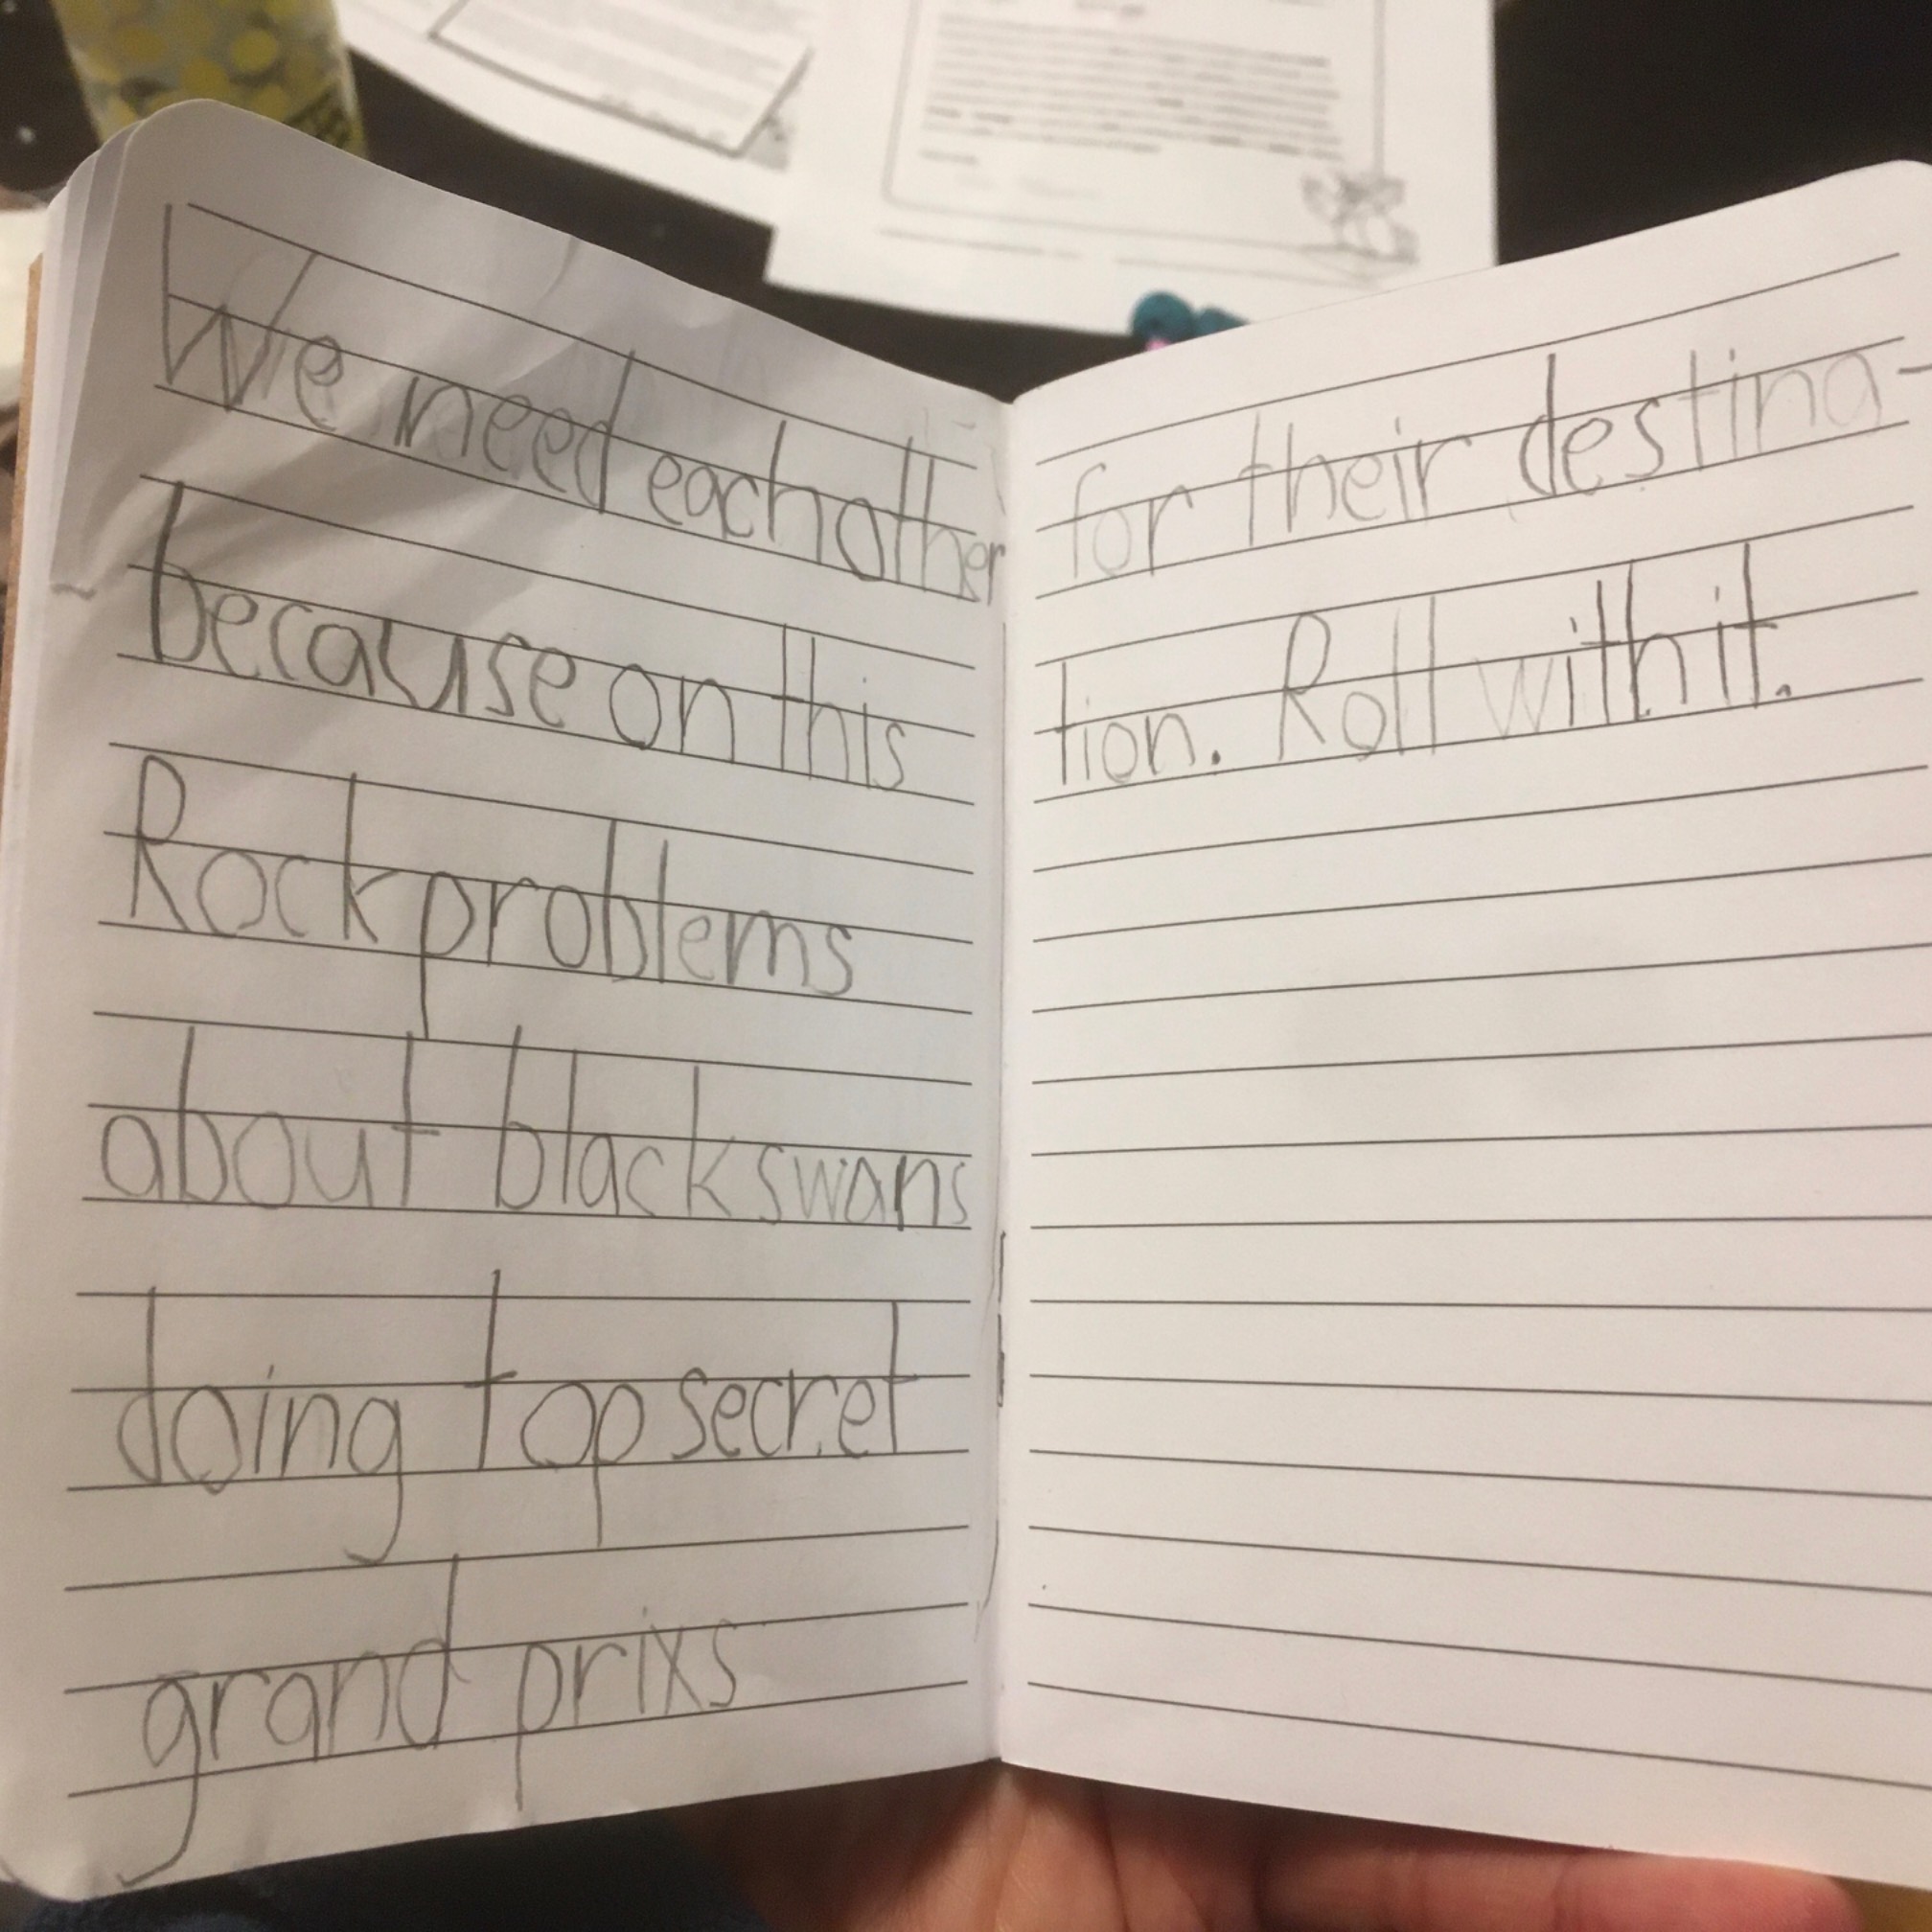 We need each other
because on this
Rock problems
about black swans
doing top secret
grand prixs
for their destina-
tion. Roll with it.